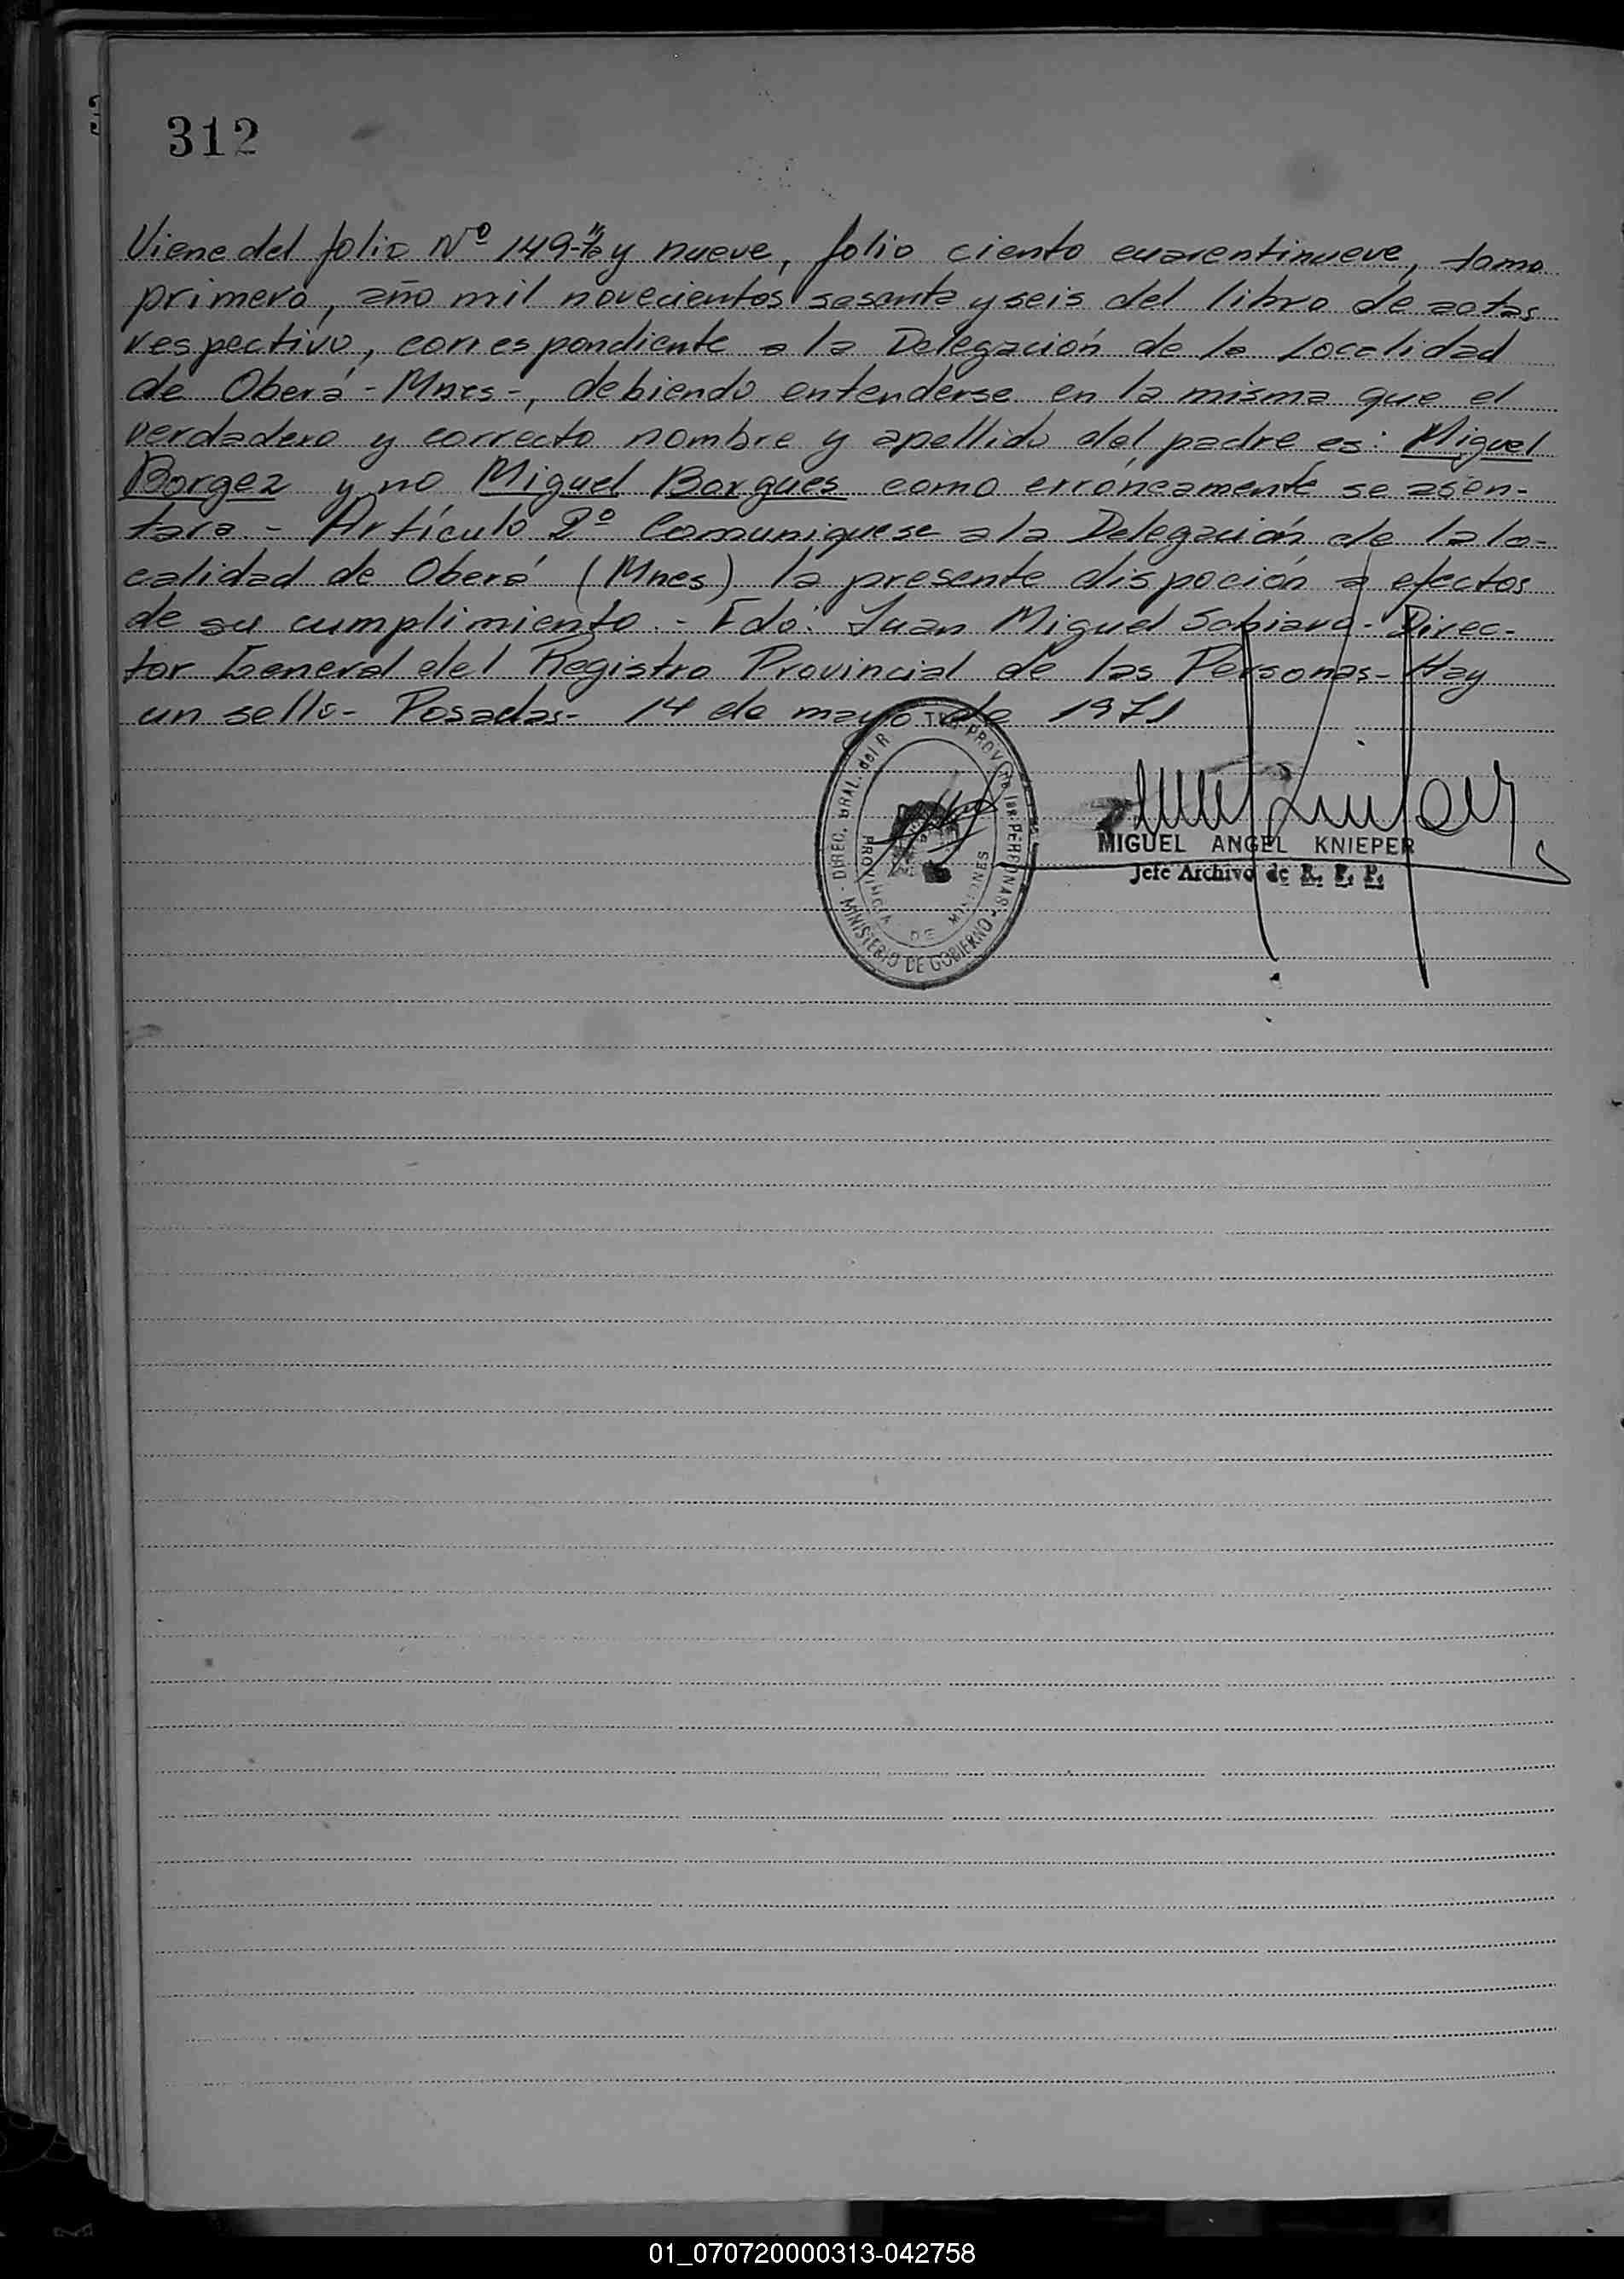 312
Viene del folio Nº 149- y nueve, folio ciento cuarentinueve, tomo
primero, año mil novecientos sesenta y seis del libro de actas
respectivo, correspondiente a la Delegación de la Localidad
de Oberá - Mnes -, debiendo entenderse en la misma que el
verdadero y correcto nombre y apellido del padre es: Miguel
Borgez y no Miguel Borgues como erróneamente se asen-
tara. - Artículo 2º Comuniquese a la Delegación de la lo-
calidad de Oberá (Mnes) la presente dispoción a efectos
de su cumplimiento. - Fdo: Juan Miguel - Direc-
tor General del Registro Provincial de las Personas - Hay
un sello - Posadas - 14 de mayo de 1971
DIREC. GRAL. del R PROV de las PERSONAS
MINISTERIO DE GOBIERNO
PROVINCIA DE MISIONES
MIGUEL ANGEL KNIEPER
Jefe Archivo de R. P. P.
01_070720000313-042758